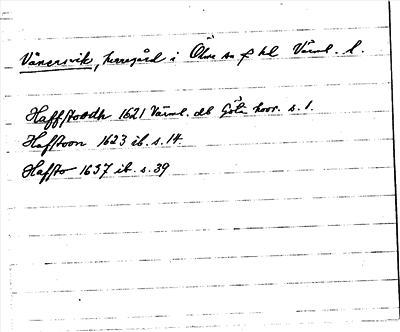 Vänersvik, herregård i Ölme sn o hd Värml. l.
Haffstoodh 1621 Värml. db Göta hovr. s. 1.
Hafstoon 1623 ib. s. 14
Hafsto 1637 ib. s. 39